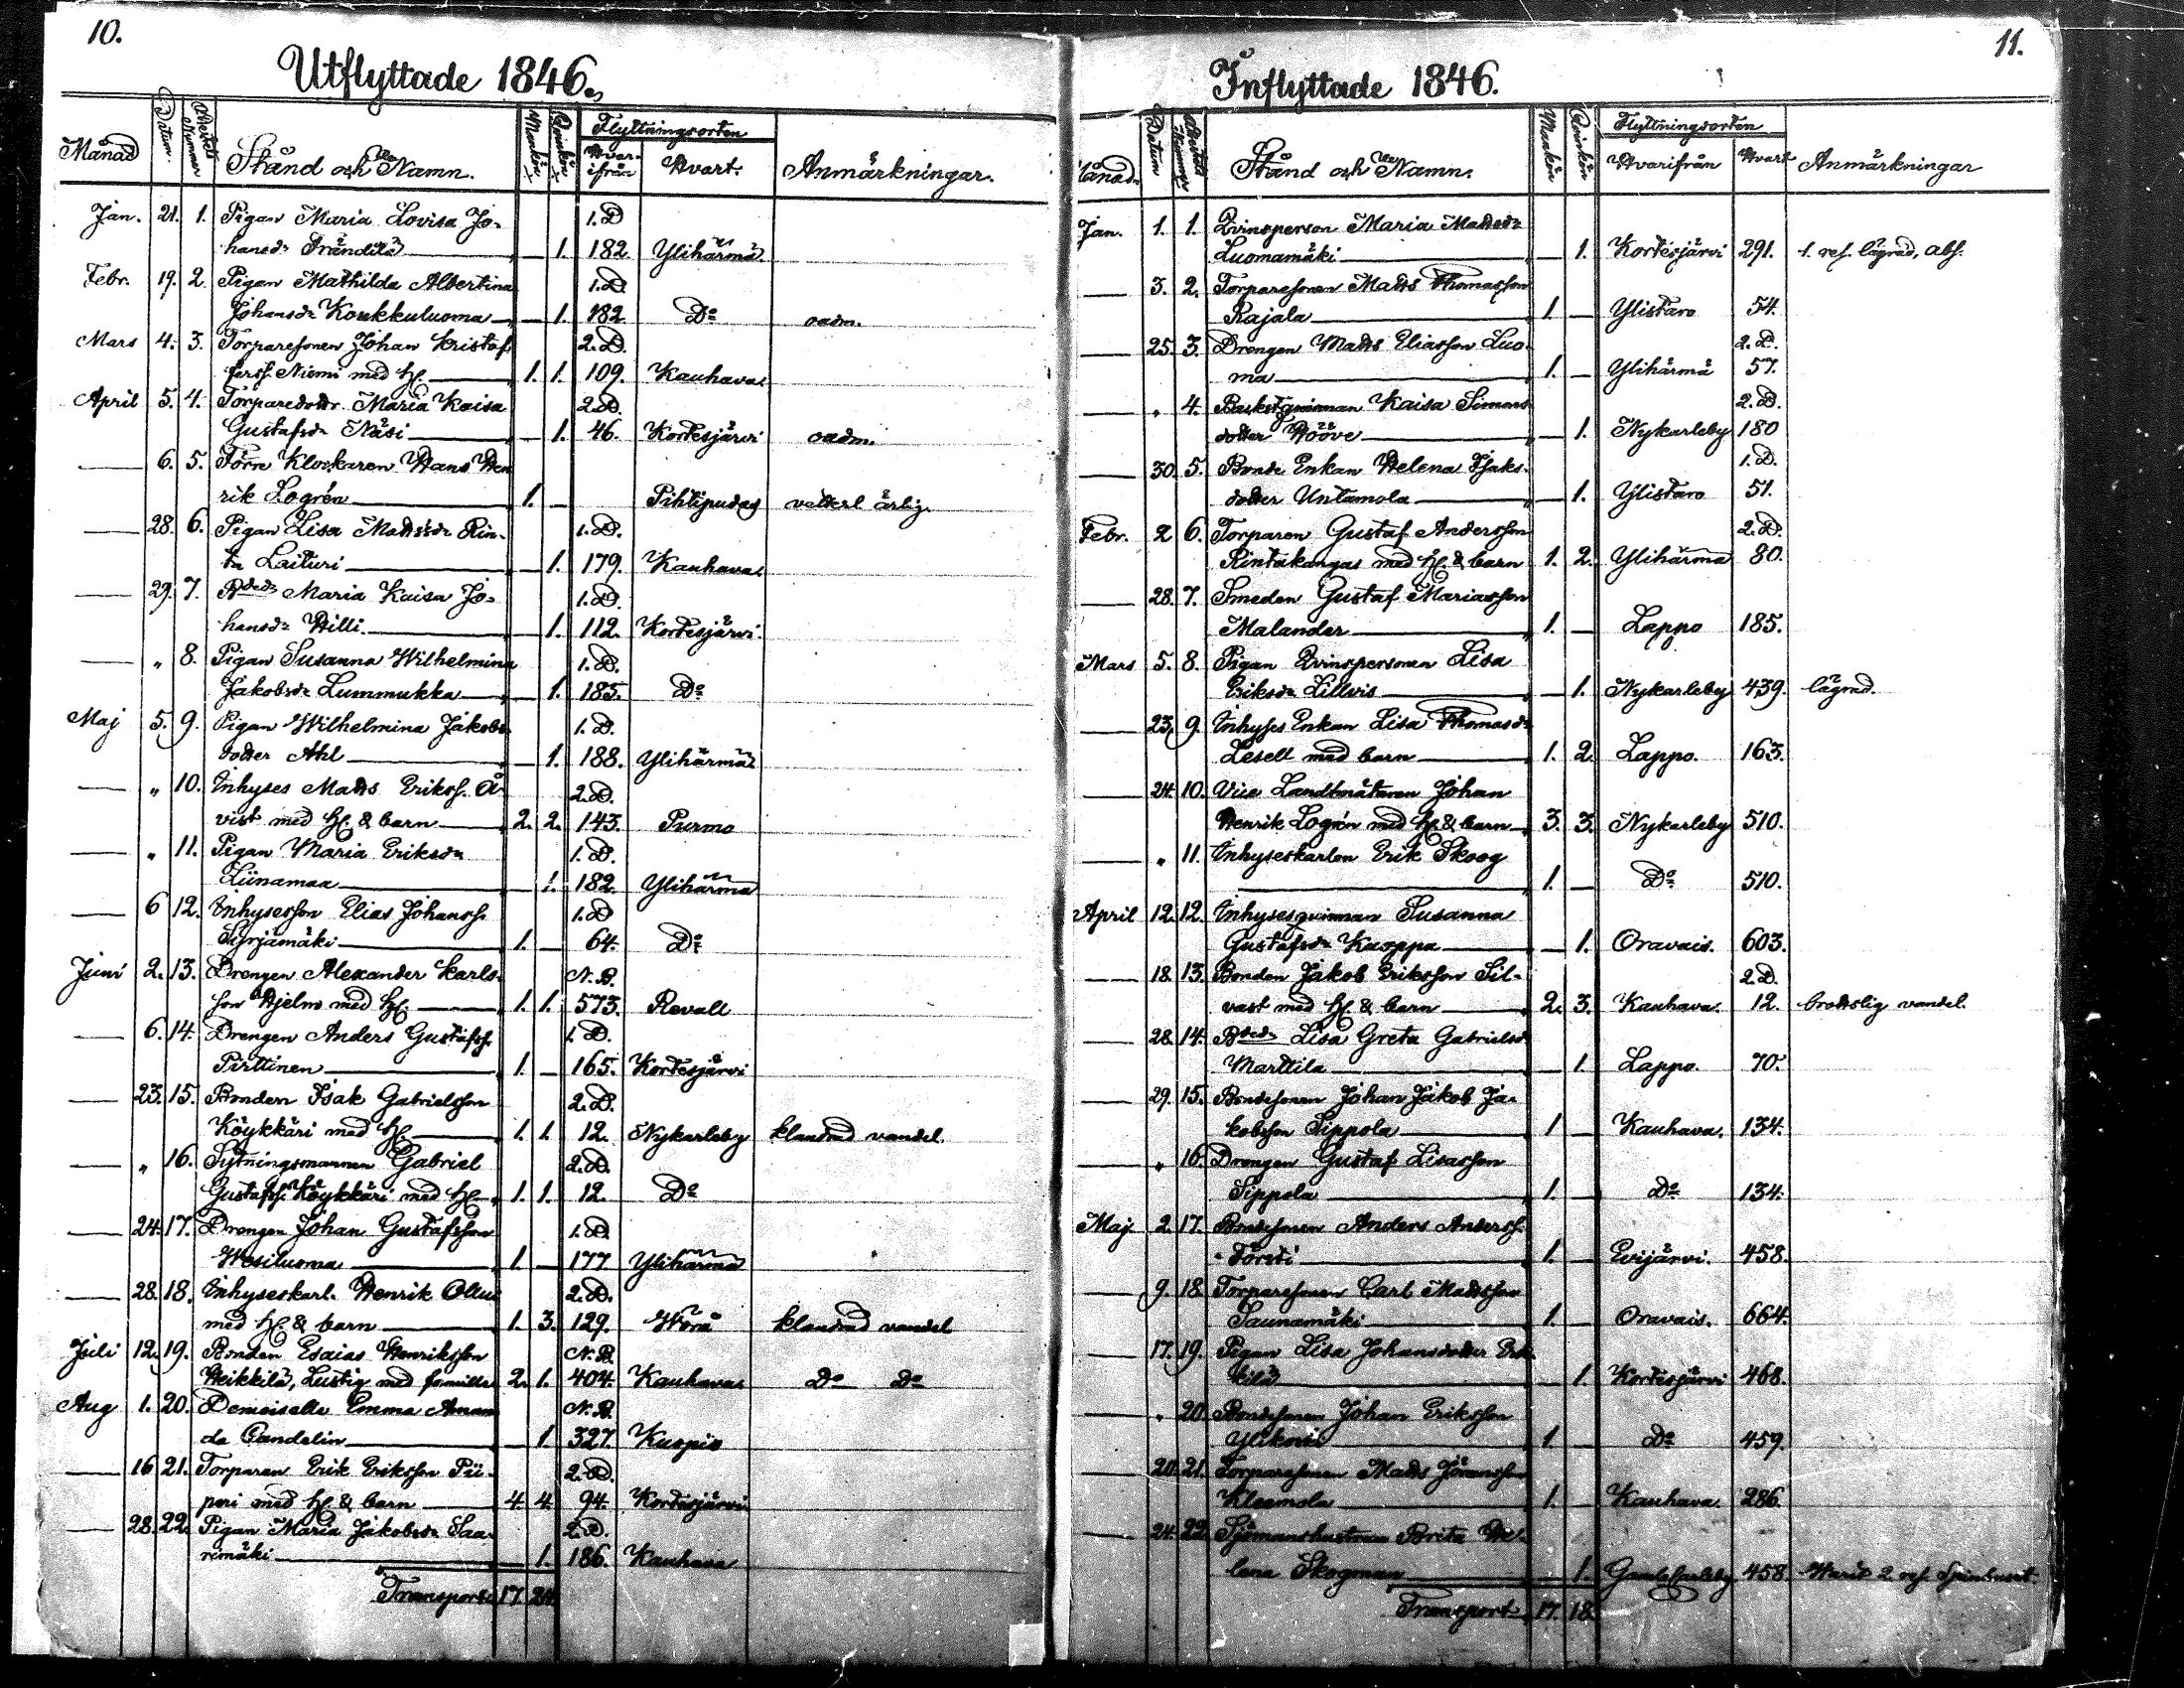 10.
Utflyttade 1846.
Månad Datum. Attestets Nummer Stånd och Namn. Mankön Qvinkön Flyttningsorten Hvarifrån Hvart. Anmärkningar.
Jan. 21. 1. Pigan Maria Lovisa Jo- 1.D
hansdr Trändilä — 1. 182 Ylihärmä.
Febr. 19. 2. Pigan Mathilda Albertina 1.D.
Johansdr Koukkuluoma — 1. 182 Do oadm.
Mars 4. 3. Torparesonen Johan Kristof 2.D.
fersf. Niemi med H. 1. 1. 109. Kauhava
April 5. 4. Torparedottr Maria Kaisa 2.D.
Gustafsdr Näsi — 1. 46. Kortesjärvi oadm.
— 6. 5. Förre Klockaren Hans Hen
rik Logrén 1. — Pihtipudas vitterl ärlig.
— 28. 6. Pigan Lisa Mattsdr Rin- 1.D.
ta Laituri — 1. 179. Kauhava.
— 29. 7. Bdedr Maria Kaisa Jo- 1.D.
hansdr Hilli — 1. 112. Kortesjärvi.
— " 8. Pigan Susanna Wilhelmina 1.D.
Jakobsdr Lummukka — 1. 185. Do
Maj 5. 9. Pigan Wilhelmina Jakobs 1.D.
dotter Ahl — 1. 188. Ylihärmä
— " 10. Inhyses Matts Eriksf. Å- 2.D.
vist med H. & barn 2. 2. 143. Purmo
— " 11. Pigan Maria Eriksdr 1.D.
Liinamaa — 1. 182. Ylihärmä
— 6 12. Inhysesson Elias Johansf. 1.D
Syrjämäki 1. — 64. Do
Juni 2. 13. Drengen Alexander Karls- N.B.
son Hjelm med H. 1. 1. 573. Revall
— 6. 14. Drengen Anders Gustafsf. 1.D.
Pirttinen 1. — 165. Kortesjärvi
— 23. 15. Bonden Isak Gabrielsson 2.D.
Köykkäri med H. 1. 1. 12. Nykarleby klandrad vandel.
— " 16. Sytningsmannen Gabriel 2.D.
Gustafsf. Köykkäri med H. 1. 1. 12. Do
— 24. 17. Drengen Johan Gustafsson 1.D.
Wesiluoma 1 — 177 Ylihärmä
— 28. 18. Inhyseskarl. Henrik Ollus 2.D.
med H. & barn 1. 3. 129. Wörå klandrad vandel
Juli 12. 19. Bonden Esaias Henriksson N.B.
Heikkilä, Lustig med familie 2. 1. 404. Kauhava Do Do
Aug 1. 20. Demoiselle Emma Aman N.B.
da Candelin — 1 327. Kuopio
— 16 21. Torparen Erik Eriksson Pii- 2.D.
pari med H. & barn 4. 4. 94. Kortesjärvi
— 28. 22. Pigan Maria Jakobsdr Saa- 2.D.
rimäki — 1. 186. Kauhava
Transport 17. 24
11.
Inflyttade 1846.
Månad. Datum Attestets Nummer Stånd och Namn. Mankön Qvinkön Flyttningsorten Hvarifrån Hvart Anmärkningar
Jan. 1. 1. Qvinsperson Maria Mattsdr
Luomamäki — 1. Kortesjärvi 291.
— 3. 2. Torparesonen Matts Thomasson
Rajala 1. — Ylistaro 54.
— 25. 3. Drengen Matts Eliasson Luo- 2.D.
ma 1. — Ylihärmä 57.
— " 4. Backstqvinnan Kaisa Simons 2.D.
dotter Hööve — 1. Nykarleby 180
— 30. 5. Bonde Enkan Helena Isaks- 1.D.
dotter Untamola — 1. Ylistaro 51.
Febr. 2 6. Torparen Gustaf Andersson 2.D.
Rintakangas med H. & barn 1. 2. Ylihärmä 80.
— 28. 7. Smeden Gustaf Mariasson
Malander 1. — Lappo 185.
Mars 5. 8. Pigan Qvinspersonen Lisa
Eriksdr Lillvis — 1. Nykarleby 439. lägrad.
— 23. 9. Inhyses Enkan Lisa Thomasdr
Leselt med barn 1. 2. Lappo. 163.
— 24. 10. Vice Landtmätaren Johan
Henrik Logrén med H. & barn 3. 3. Nykarleby 510.
— " 11. Inhyseskarlen Erik Skoog
1. — Do 510.
April 12. 12. Inhysesqvinnan Susanna
Gustafsdr Kaoppa — 1. Oravais. 603.
— 18. 13. Bonden Jakob Eriksson Sil- 2.D.
vast med H. & barn 2. 3. Kauhava. 12. brottslig vandel.
— 28. 14. Bdedr Lisa Greta Gabrielsd
Marttila — 1. Lappo. 70.
— 29. 15. Bondesonen Johan Jakob Ja-
kobsson Sippola 1 — Kauhava. 134.
— " 16. Drengen Gustaf Lisasson
Sippola 1. — Do 134.
Maj 2. 17. Bondesonen Anders Andersf.
Försti 1. — Evijärvi. 458.
— 9. 18. Torparesonen Carl Mattsson
Saunamäki 1. — Oravais. 664.
— 17. 19. Pigan Lisa Johansdotter
— 1. Kortesjärvi 468.
— " 20. Bondesonen Johan Eriksson
1. — Do 459.
— 20. 21. Torparesonen Matts Jöransson
Kleemola 1. — Kauhava. 286.
— 24. 22. Sjömanshustrun Brita He-
lena Skogman — 1. Gamlakarleby 458
Transport 17. 18.